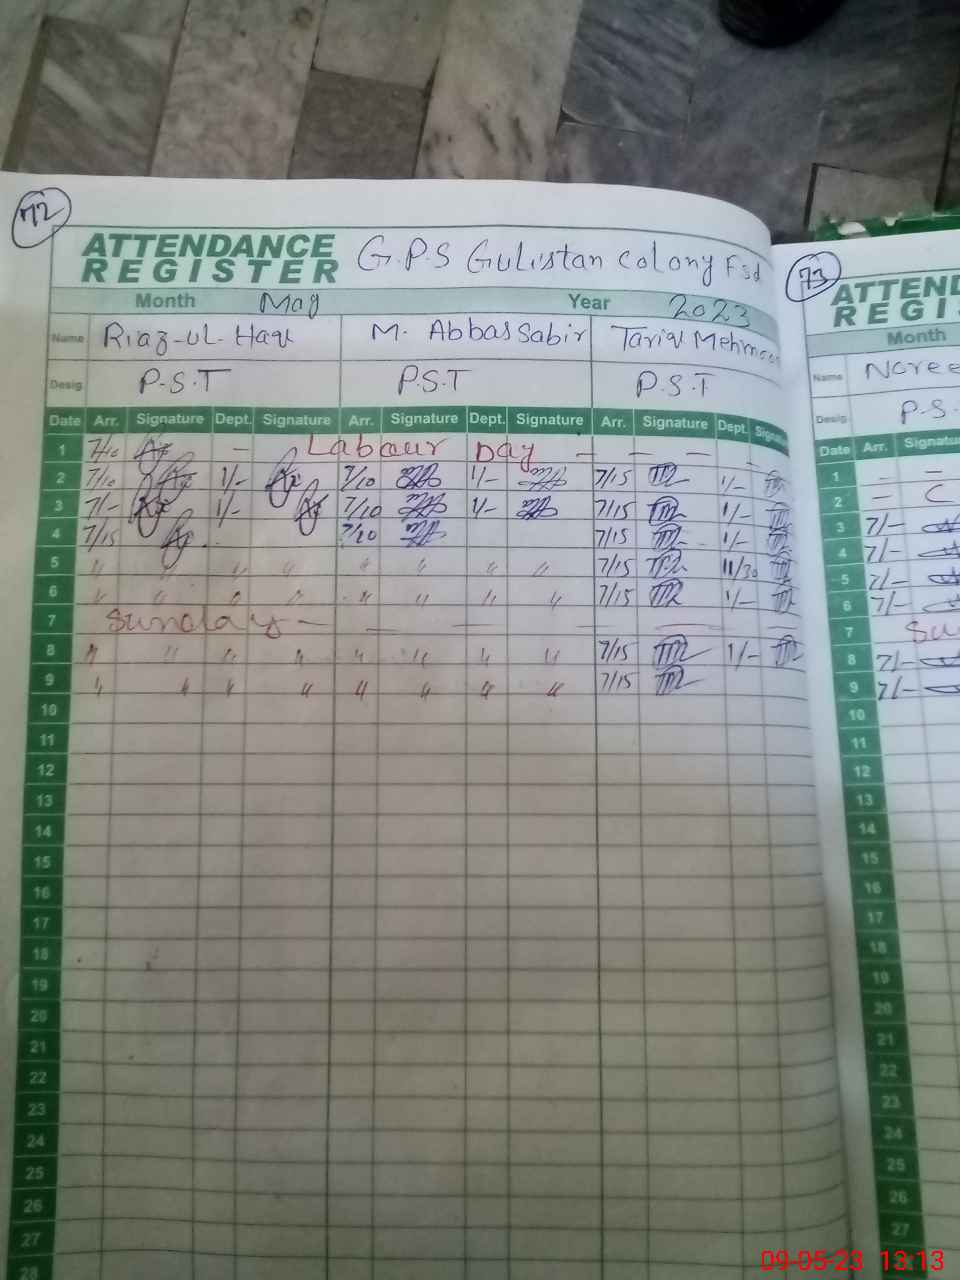 72
ATTENDANCE REGISTER G.P.S Gulistan Colony Fsd
Month May Year 2023
Name Riaz-ul-Haq M. Abbas Sabir Tariq Mehmood
Desig. P.S.T P.S.T P.S.T
Date Arr. Signature Dept. Signature Arr. Signature Dept. Signature Arr. Signature Dept. Signature
1 7/10 – Labour Day – – – –
2 7/10 1/- 7/10 1/- 7/15 1/-
3 7/- 1/- 7/10 1/- 7/15 1/-
4 7/15 7/10 7/15 1/-
5 " " " " " " " " 7/15 11/30
6 " " " " " " " " 7/15 1/-
7 Sunday – – – – – –
8 " " " " " " " " 7/15 1/-
9 " " " " " " " " 7/15
10
11
12
13
14
15
16
17
18
19
20
21
22
23
24
25
26
27
28
73
ATTEND
REGI
Month
Name Noree
Desig. P.S.
Date Arr. Signatu
1 –
2 – C
3 7/-
4 7/-
5 7/-
6 7/-
7 Su
8 7/-
9 7/-
10
11
12
13
14
15
16
17
18
19
20
21
22
23
24
25
26
27
09-05-23 13:13